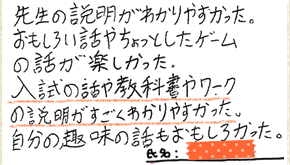 先生の説明がわかりやすかった。
おもしろい話やちょっとしたゲーム
の話が楽しかった.
入試の話や教科書やワーク
の説明がすごくわかりやすかった。
自分の趣味の話もおもしろかった。
氏名: